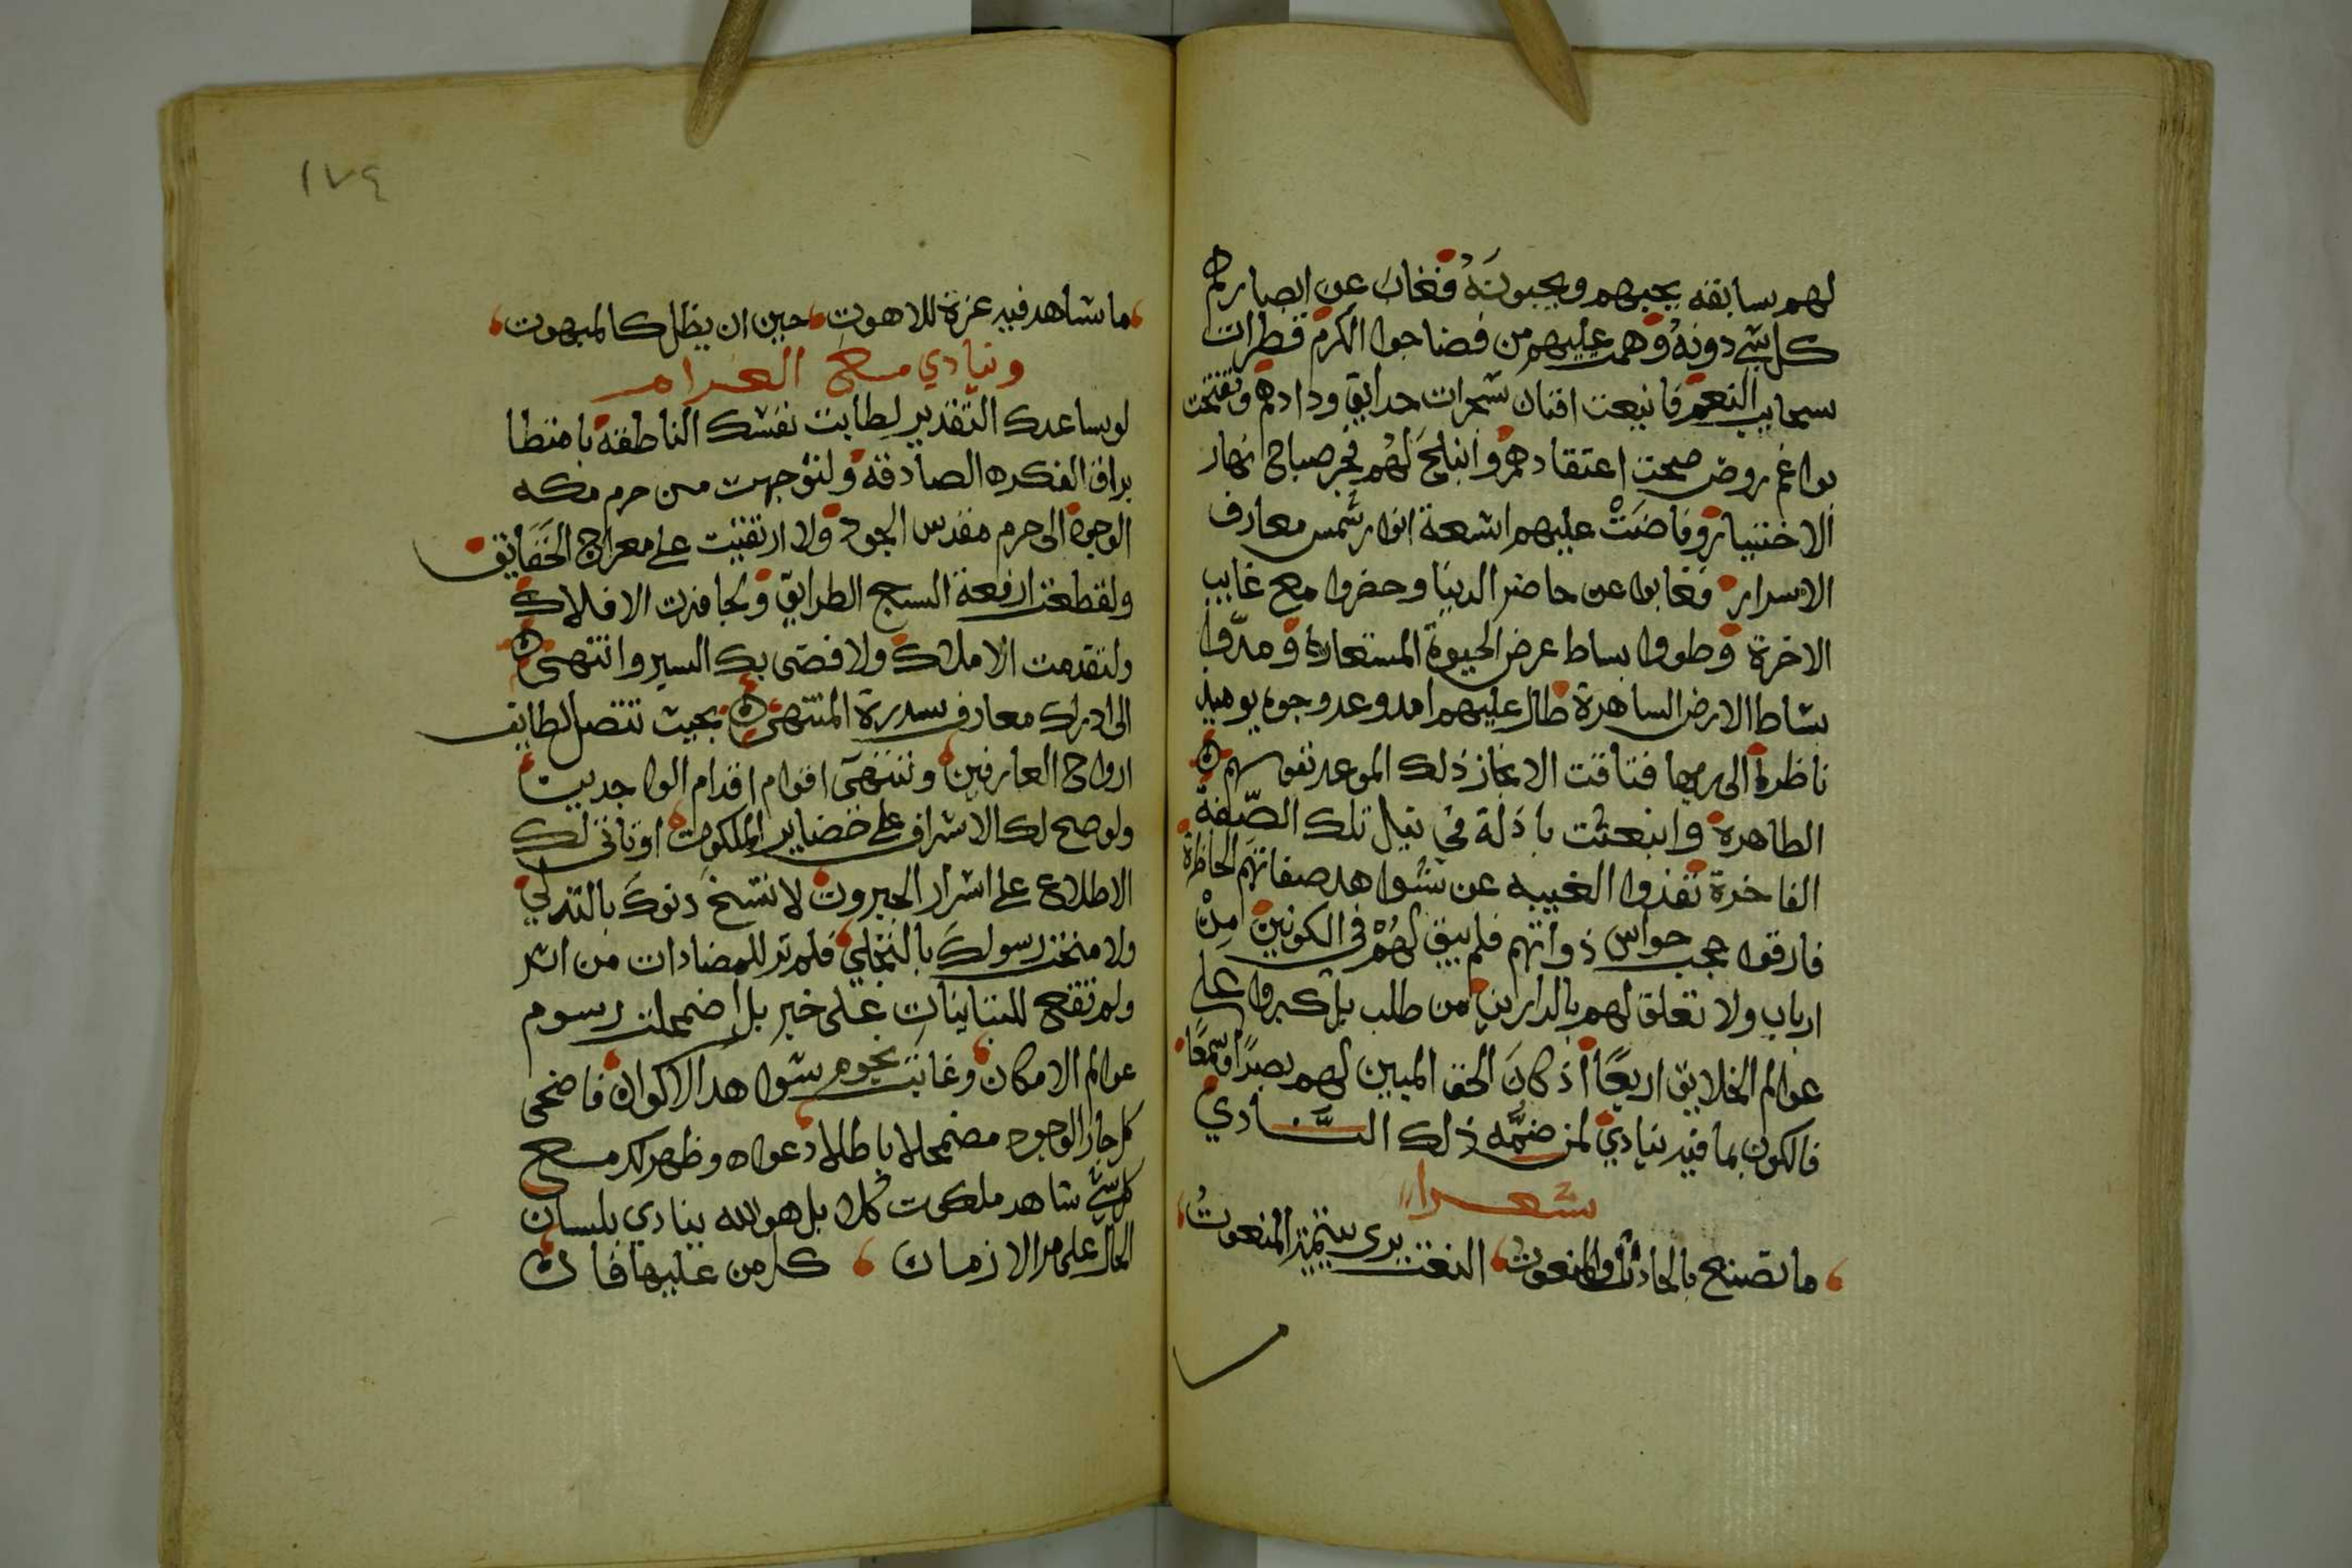 لهم سابقه يحبهم ويحبونَهُ فغاب عن ابصارهم
كل شي دونهُ وهمت عليهم من فضا جوا الكرم قطرات
سحايب النعم فانبعت افنان شجرات حدايق ودادهم وتفتحت
روض صحت اعتقادهم وانبلج لهُم فجر صباح نهار
الاختيار وفاضَتْ عليهم اشعة انوار شمس معارف
الاسرار فغابوا عن حاضر الدنيا وحضروا مع غايب
الاخرة وطووا بساط عرض الحيوة المستعارة ومدّوا
بساط الارض الساهرة طال عليهم امد وعد وجوه يوميذ
ناظرة الى ربها فتاقت الا نجاز ذلك الموعد نفوسهم
الطاهرة وانبعثت باذلة في نيل تلك الصّفة
الفاخرة نفذوا الغيبه عن شواهد صفاتهم الحاظرة
فارقوا حجب حواس ذواتهم فلم يبق لهُمْ في الكونين مِنْ
ارباب ولا تعلق لهم بالدارين من طلب بل كبروا على
عوالم الخلايق اربعًا اذ كانَ الحق المبين لهم بصرًا وسمعًا
فالكون بما فيه ينادي لمن ضمَّه ذلك النَّادي
شعرا
ما تصنع بالحادث والمنعوت النعت يرى بتمييز المنعوتُ
١٧٤
ما شاهد فيه عزة للاهوت حين ان يظل كالمبهوت
وينادي مع الغرام
لو ساعدك التقدير لطابت نفسك الناطقه بامتطا
براق الفكره الصادقه ولتوجهت من حرم مكه
الوجود الى حرم مقدس الجود ولا ارتقيت على معراج الحَقَايق
ولقطعت ارقعة السبع الطرايق ولجاوزت الافلاك
ولتقدمت الاملاك ولافضى بك السير وانتهى
الى ادراك معارف سدرة المنتهى بحيث تتصل لطايف
ارواح العارفين وتنتهى اقوام اقدام الواجدين
ولوضح لك الاشراف على خضاير الملكوت او تاتى لك
الاطلاع على اسرار الجبروت لا نتسخ دنوكَ بالتدلي
ولا منحت رسولكَ بالتجلي فلم تر للمضادات من اثر
ولم تقع للمتباينات على خبر بل اضمحلت رسوم
عوالم الامكان وغابت نجوم شواهد الاكوان فاضحى
كل جاز الوجود مضمحلا باطلا دعواه وظهر لك مع
كل شي شاهد ملكوت كُل بل هو الله ينادي بلسان
الحال على مر الازمان كل من عليها فان